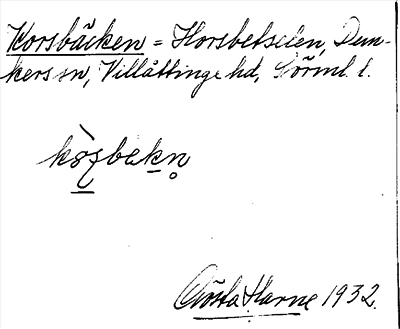 Korsbäcken = Horsbetselen, Dun-
kers sn, Villåttinge hd, Sörml. l.
kòʂbekn̥
Gösta Harne 1932.